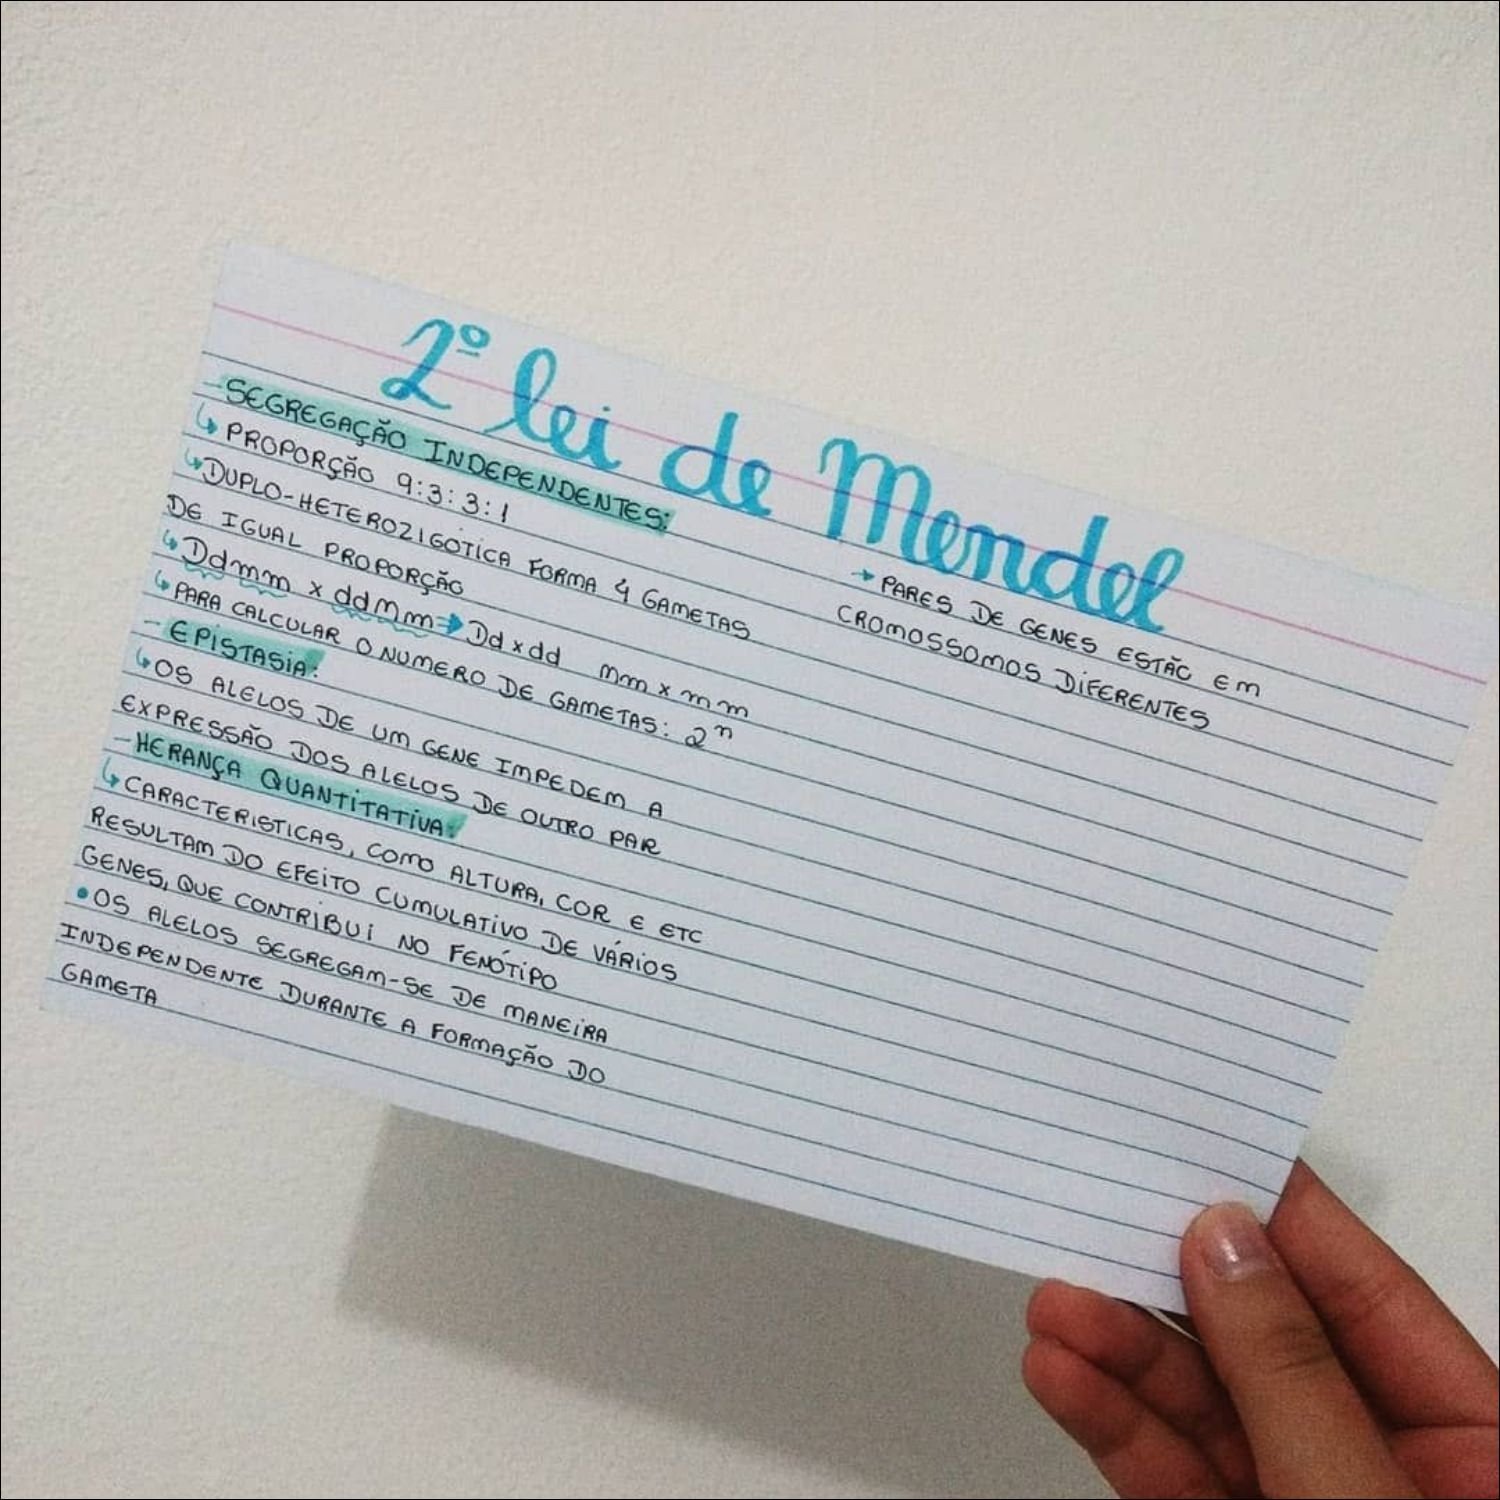 2º lei de Mendel
- SEGREGAÇÃO INDEPENDENTES:
↳ PROPORÇÃO 9:3:3:1
↳ DUPLO-HETEROZIGOTICA FORMA 4 GAMETAS
DE IGUAL PROPORÇÃO
↳ Ddmm x ddMm → Dd x dd Mm x mm
↳ PARA CALCULAR O NUMERO DE GAMETAS: 2ⁿ
- EPISTASIA:
↳ OS ALELOS DE UM GENE IMPEDEM A
EXPRESSÃO DOS ALELOS DE OUTRO PAR
- HERANÇA QUANTITATIVA:
↳ CARACTERISTICAS, COMO ALTURA, COR E ETC
RESULTAM DO EFEITO CUMULATIVO DE VÁRIOS
GENES, QUE CONTRIBUI NO FENÓTIPO
• OS ALELOS SEGREGAM-SE DE MANEIRA
INDEPENDENTE DURANTE A FORMAÇÃO DO
GAMETA
→ PARES DE GENES ESTÃO EM
CROMOSSOMOS DIFERENTES